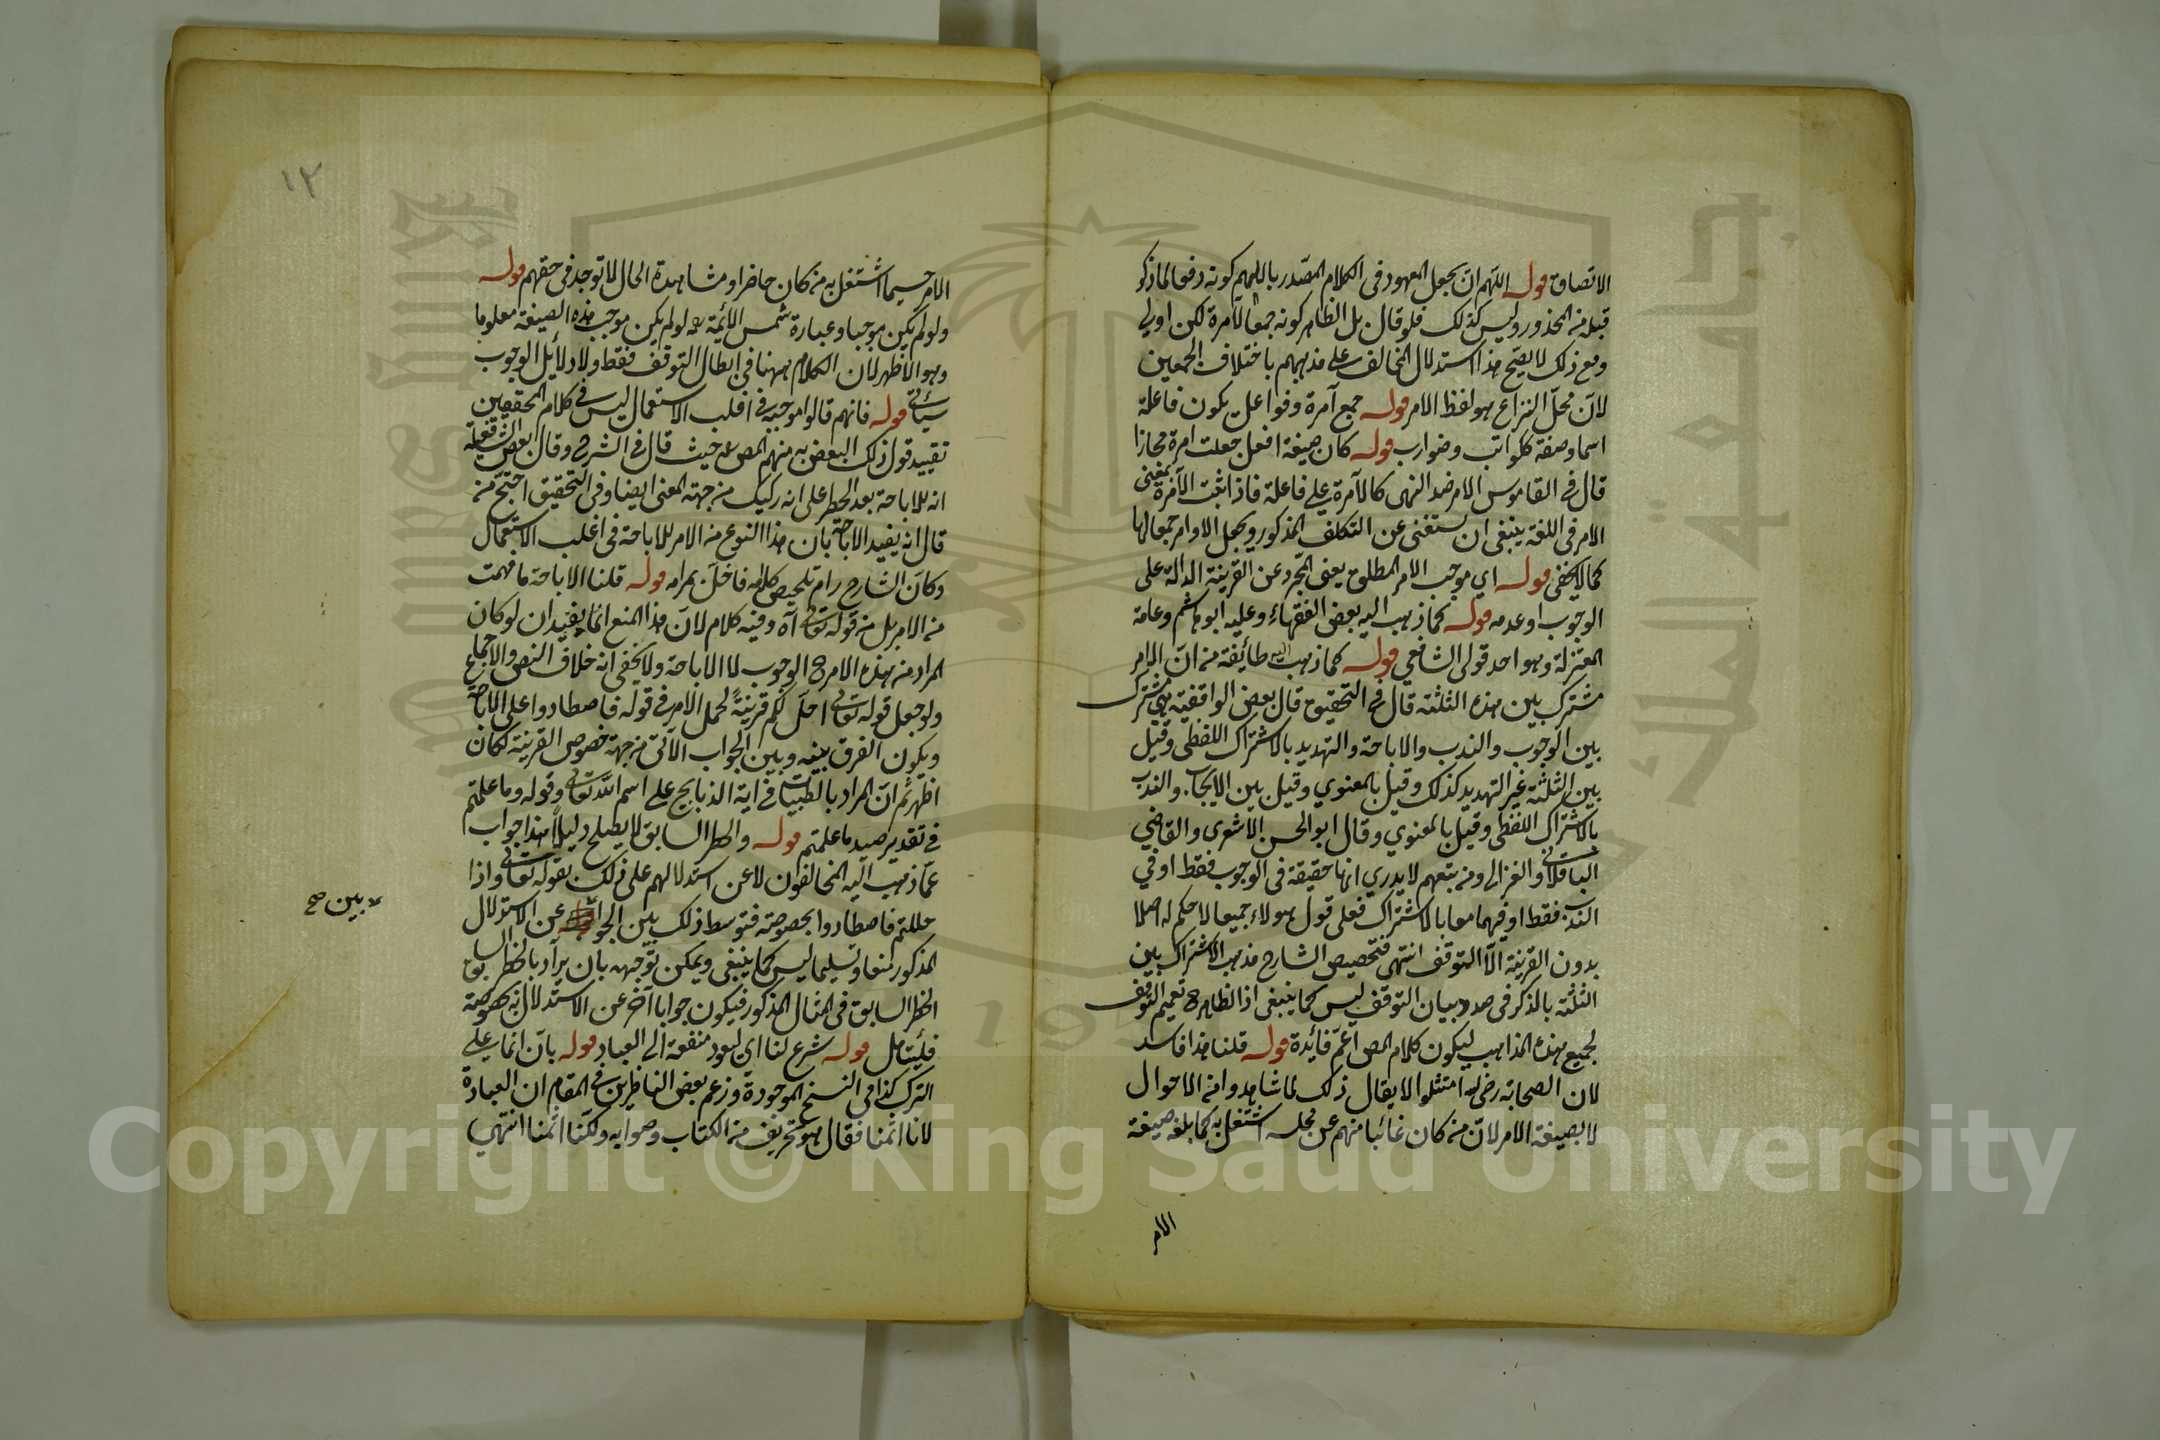 الاتصاق قوله اللهم ان يجعل المعهود في الكلام المصدر باللهم كونه دفعا لما ذكر
قبله من المحذور وليس كذلك فلو قال بل الظاهر كونه جمعا لآمرة لكن اولى
ومع ذلك لا يصح هذا استدلال المخالف على مذهبهم باختلاف الجمعين
لان محل النزاع هو لفظ الامر قوله جمع آمرة وفواعل يكون فاعلة
اسما وصفة كلواتب وضوارب قوله كان صيغة افعل جعلت امرة مجازا
قال في القاموس الامر ضد النهى كالآمرة على فاعلة فاذا ثبت الآمرة بمعنى
الامر في اللغة ينبغى ان يستغنى عن التكلف المذكور ويجعل الاوامر جمعا لها
كما لا يخفى قوله اي موجب الامر المطلق يعنى المجرد عن القرينة الدالة على
الوجوب او عدمه قوله كما ذهب اليه بعض الفقهاء وعليه ابو هاشم وعامة
المعتزلة وهو احد قولى الشافعي قوله كما ذهب اليه طائفة من ان الامر
مشترك بين هذه الثلثة قال في التحقيق قال بعض الواقفية هي مشترك
بين الوجوب والندب والاباحة والتهديد بالاشتراك اللفظى وقيل
بين الثلثة غير التهديد كذلك وقيل بالمعنوي وقيل بين الايجاب والندب
بالاشتراك اللفظى وقيل بالمعنوي وقال ابو الحسن الاشعرى والقاضي
الباقلانى والغزالى ومن تبعهم لا يدري انها حقيقة في الوجوب فقط او في
الندب فقط او فيهما معا بالاشتراك فعلى قول هولاء جميعا لا حكم له اصلا
بدون القرينة الا التوقف انتهى فتخصيص الشارح مذهب الاشتراك بين
الثلثة بالذكر في صدد بيان التوقف ليس كما ينبغى اذ الظاهر ح تعميم التوقف
لجميع هذه المذاهب ليكون كلام المص اعم فائدة قوله قلنا هذا فاسد
لان الصحابة رضى الله امتثلوا لا يقال ذلك لما شاهدوا من الاحوال
لا بصيغة الامر لان من كان غائبا منهم عن مجلسه اشتغل به كما بلغه صيغة
الامر
١٣
الامر حسبما اشتغل به من كان حاضرا ومشاهدة الحال لا توجد في حقهم قوله
ولو لم يكن موجبا وعبارة شمس الائمة رحه لو لم يكن موجب هذه الصيغة معلوما
وهو الاظهر لان الكلام ههنا في ابطال التوقف فقط ولا دلائل الوجوب
سيأتى قوله فانهم قالوا موجبه في اغلب الاستعمال ليس في كلام المحققين
تقييد قول ذلك البعض به منهم المص رحه حيث قال في الشرح وقال بعض الشافعية
انه للاباحة بعد الحظر على انه ركيك من جهة المعنى ايضا وفي التحقيق احتج من
قال انه يفيد الاباحة بان هذا النوع من الامر للاباحة في اغلب الاستعمال
وكان الشارح رام تلخيص كلامه فاخل بمرامه قوله قلنا الاباحة ما فهمت
من الامر بل من قوله تعالى آه وفيه كلام لان هذا المنع انما يفيد ان لو كان
المراد منه بهذه الامر ح الوجوب لما الاباحة ولا يخفى انه خلاف النص والاجماع
ولو جعل قوله تعالى احل لكم قرينة لحمل الامر في قوله فاصطادوا على الاباحة
ويكون الفرق بينه وبين الجواب الآتى من جهة خصوص القرينة لكان
اظهر ثم ان المراد بالطيبات في اية الذبايح على اسم الله تعالى وقوله وما علمتم
في تقدير صيد ما علمتم قوله والحظر السابق لا يصلح دليلا هذا جواب
عما ذهب اليه المخالفون لا عن استدلالهم على ذلك بقوله تعالى واذا
حللتم فاصطادوا بخصوصه فتوسط ذلك بين الجواب عن الاستدلال
بين صح
المذكور منعا وتسليما ليس كما ينبغى ويمكن توجيهه بان يراد بالحظر السابق
الحظر السابق في المثال المذكور فيكون جوابا آخر عن الاستدلال به بخصوصه
فليتامل قوله شرع لنا اى ليعود منفعة الى العباد قوله بان انما على
الترك كذا في النسخ الموجودة وزعم بعض الناظرين في المقام ان العبادة
لانا اثمنا فقال هو تحريف من الكتاب وصوابه ولكنا اثمنا انتهى
Copyright © King Saud University